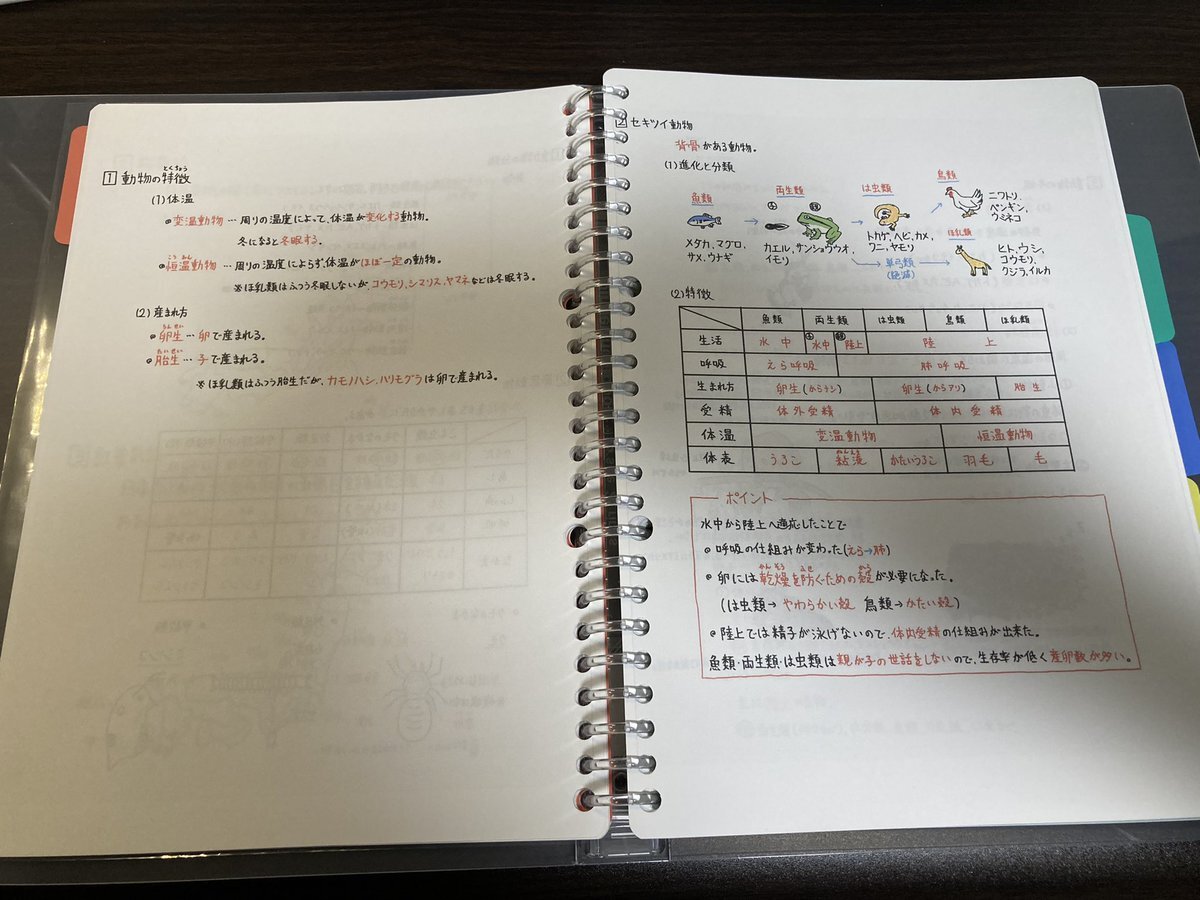 1 動物の特徴
とくちょう
(1) 体温
変温動物…周りの温度によって、体温が変化する動物。
冬になると冬眠する。
こうおん
恒温動物…周りの温度によらず、体温がほぼ一定の動物。
※ほ乳類はふつう冬眠しないが、コウモリ、シマリス、ヤマネなどは冬眠する。
(2) 産まれ方
らんせい
卵生…卵で産まれる。
たいせい
胎生…子で産まれる。
※ほ乳類はふつう胎生だが、カモノハシ、ハリモグラは卵で産まれる。
2 セキツイ動物
背骨がある動物。
(1) 進化と分類
魚類
メダカ、マグロ、
サメ、ウナギ
両生類
カエル、サンショウウオ、
イモリ
は虫類
トカゲ、ヘビ、カメ、
ワニ、ヤモリ
鳥類
ニワトリ、
ペンギン、
ウミネコ
単弓類
(絶滅)
ほ乳類
ヒト、ウシ、
コウモリ、
クジラ、イルカ
(2) 特徴
魚類 両生類 は虫類 鳥類 ほ乳類
生活 水中 水中 陸上 陸上
呼吸 えら呼吸 肺呼吸
生まれ方 卵生(からナシ) 卵生(からアリ) 胎生
受精 体外受精 体内受精
体温 変温動物 恒温動物
体表 うろこ 粘液 かたいうろこ 羽毛 毛
ポイント
水中から陸上へ適応したことで
呼吸の仕組みが変わった(えら→肺)
かんそう ふせ から
卵には乾燥を防ぐための殻が必要になった。
(は虫類→やわらかい殻 鳥類→かたい殻)
陸上では精子が泳げないので、体内受精の仕組みが出来た。
魚類・両生類・は虫類は親が子の世話をしないので、生存率が低く産卵数が多い。